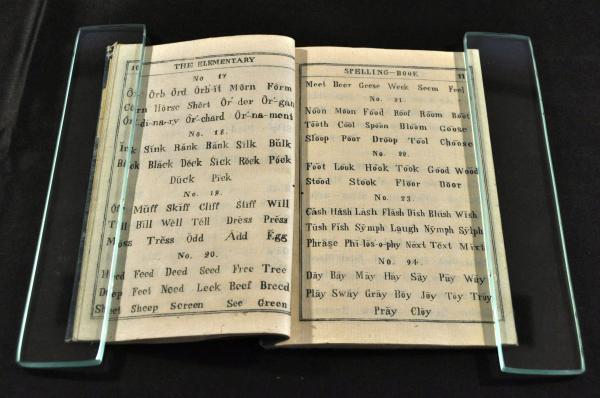 10 THE ELEMENTARY
No. 17
Ôr Ôrb Ôrd Ôrb-it Môrn Fôrm
Côrn Hôrse Shôrt Ôr´der Ôr´gan
Ôr´di-na-ry Ôr´chard Ôr´na-ment
No. 18.
Ĭnk Sĭnk Rănk Bănk Sĭlk Bŭlk
Băck Blăck Dĕck Sĭck Rŏck Pŏck
Dŭck Pĭck
No. 19.
Ŏff Mŭff Skĭff Clĭff Stĭff Wĭll
Tĭll Bĭll Wĕll Tĕll Drĕss Prĕss
Mŏss Trĕss Ŏdd Ădd Ĕgg
No. 20.
Heed Feed Deed Seed Free Tree
Deep Feet Need Leek Beef Breed
Sheet Sheep Screen See Green
SPELLING-BOOK 11
Meet Beer Geese Week Seem Feel
No. 21.
Noon Moon Food Roof Room Boot
Tooth Cool Spoon Bloom Goose
Sloop Poor Droop Tool Choose
No. 22.
Foot Look Hook Took Good Wood
Stood Stook Floor Door
No. 23.
Căsh Hăsh Lăsh Flăsh Dĭsh Blŭsh Wĭsh
Tŭsh Fĭsh Sy̆mph Laugh Ny̆mph Sy̆lph
Phrāse Phi-lŏs-o-phy Nĕxt Tĕxt Mĭxt
No. 24.
Dāy Bāy Māy Hāy Sāy Pāy Wāy
Plāy Swāy Grāy Bŏy Jŏy Tŏy Trŏy
Prāy Clŏy